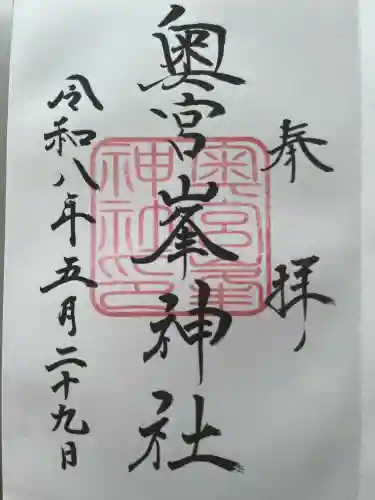 奉拝
奥宮峯神社
奥宮峯
神社印
令和八年五月二十九日